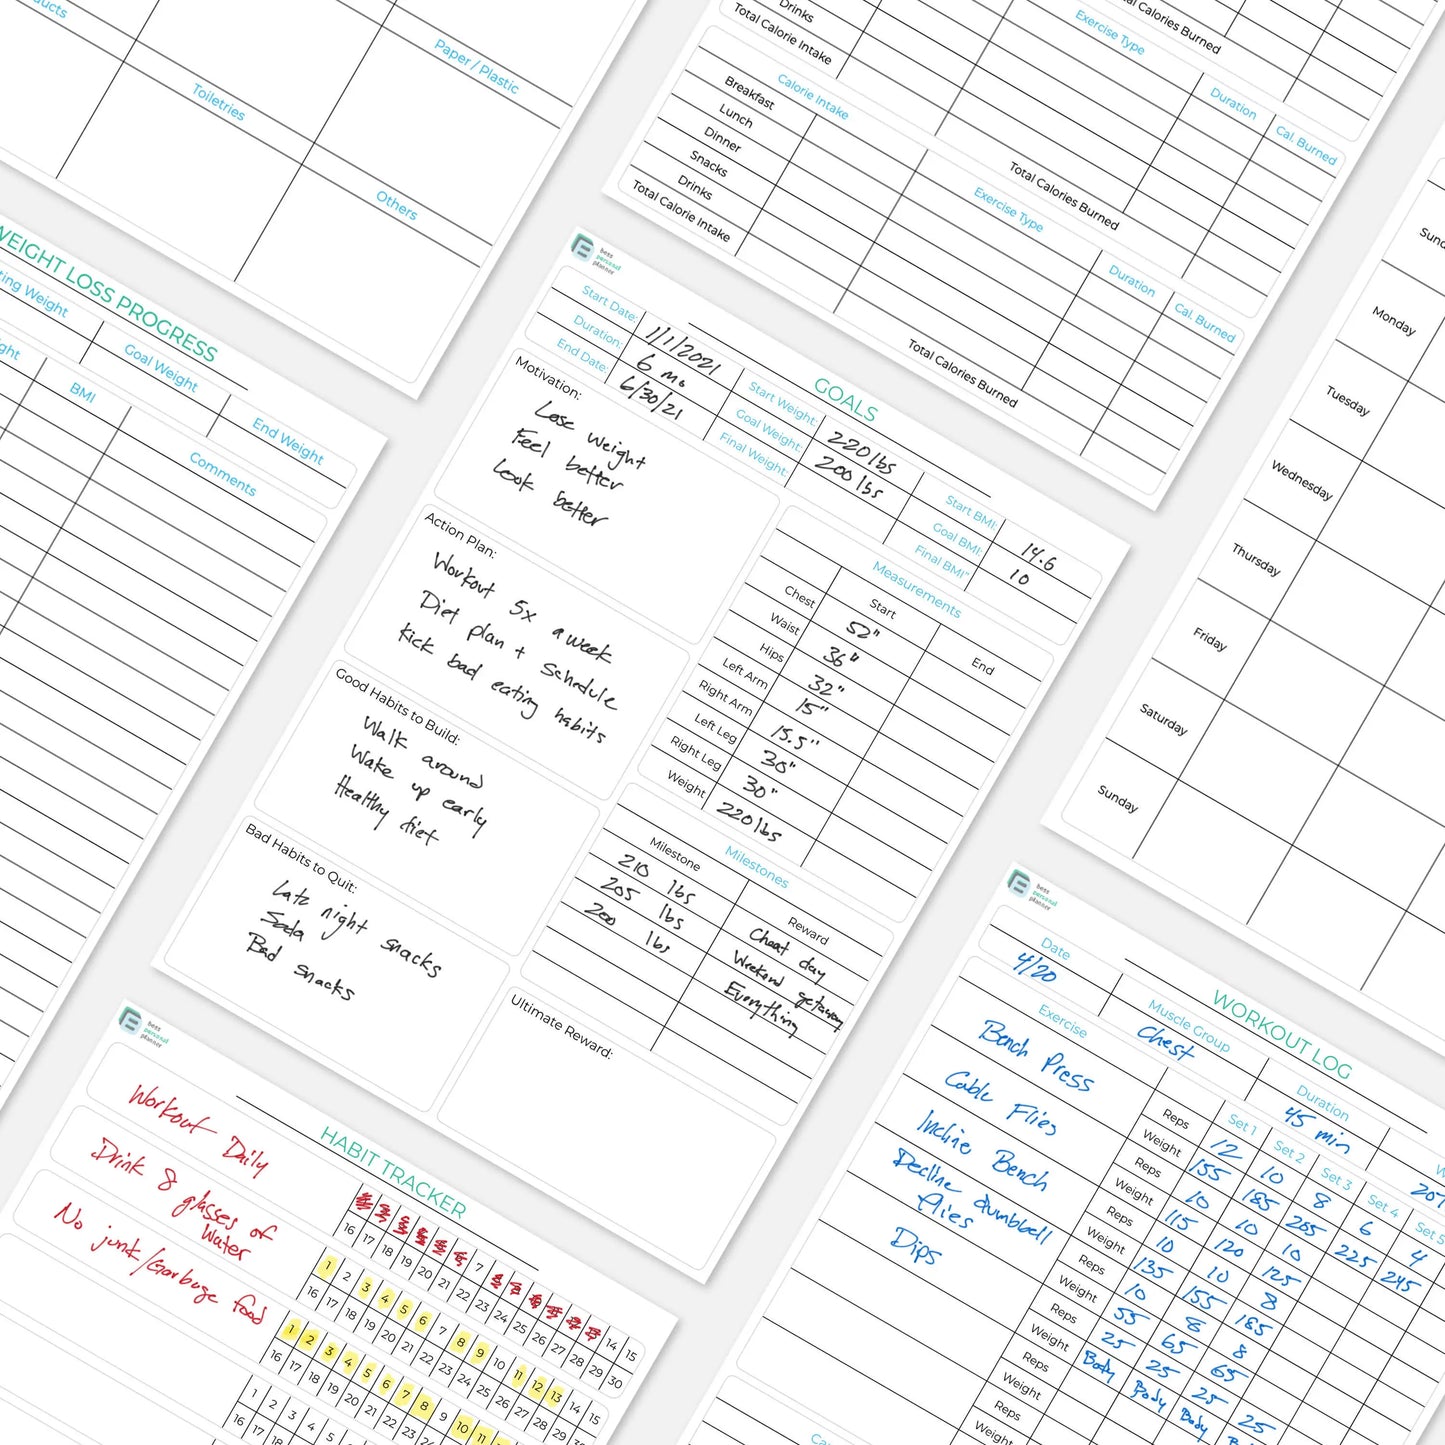 Paper / Plastic
Toiletries
Others
Drinks
Total Calorie Intake
Exercise Type
Total Calories Burned
Duration
Cal. Burned
Calorie Intake
Breakfast
Lunch
Dinner
Snacks
Drinks
Total Calorie Intake
Total Calories Burned
Exercise Type
Duration
Cal. Burned
Total Calories Burned
Monday
Tuesday
Wednesday
Thursday
Friday
Saturday
Sunday
WEIGHT LOSS PROGRESS
Goal Weight
End Weight
BMI
Comments
bess
personal
planner
GOALS
Start Date: 1/1/2021
Duration: 6 mo
End Date: 6/30/21
Start Weight: 220 lbs
Goal Weight: 200 lbs
Final Weight:
Start BMI: 14.6
Goal BMI: 10
Final BMI"
Motivation:
Lose weight
Feel better
Look better
Action Plan:
Workout 5x a week
Diet plan + Schedule
Kick bad eating habits
Good Habits to Build:
Walk around
Wake up early
Healthy diet
Bad Habits to Quit:
Late night snacks
Soda
Bad snacks
Measurements
Start End
Chest 52"
Waist 36"
Hips 32"
Left Arm 15"
Right Arm 15.5"
Left Leg 30"
Right Leg 30"
Weight 220 lbs
Milestones
Milestone Reward
210 lbs Cheat day
205 lbs Weekend getaway
200 lbs Everything
Ultimate Reward:
bess
personal
planner
HABIT TRACKER
Workout Daily
7 14 15
16 17 18 19 20 21 22 23 24 25 26 27 28 29 30
Drink 8 glasses of
Water
1 2 3 4 5 6 7 8 9 10 11 12 13 14 15
16 17 18 19 20 21 22 23 24 25 26 27 28 29
No junk/Garbage food
1 2 3 4 5 6 7 8 9 10 11
16 17 18 19 20 21 22 23 24
1 2 3 4 5
16 17 18
bess
personal
planner
WORKOUT LOG
Date
4/20
Muscle Group
Chest
Duration
45 min
Exercise
Set 1 Set 2 Set 3 Set 4 Set 5
Bench Press
Reps 12 10 8 6 4
Weight 155 185 205 225 245
Cable Flies
Reps 10 10 10
Weight 115 120 125
Incline Bench
Reps 10 10 8
Weight 135 155 185
Decline dumbbell
flies
Reps 10 8 8
Weight 55 65 65
Dips
Reps 25 25 25 25
Weight Body Body Body
Reps
Weight
Reps
Weight